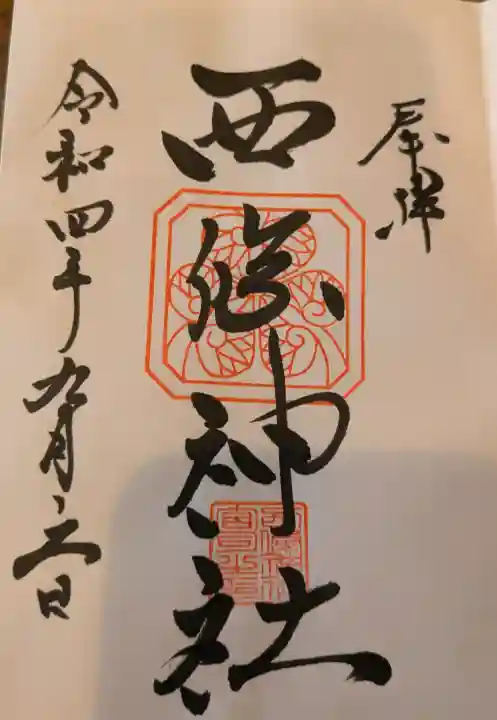 奉拝
西総神社
令和四年九月日